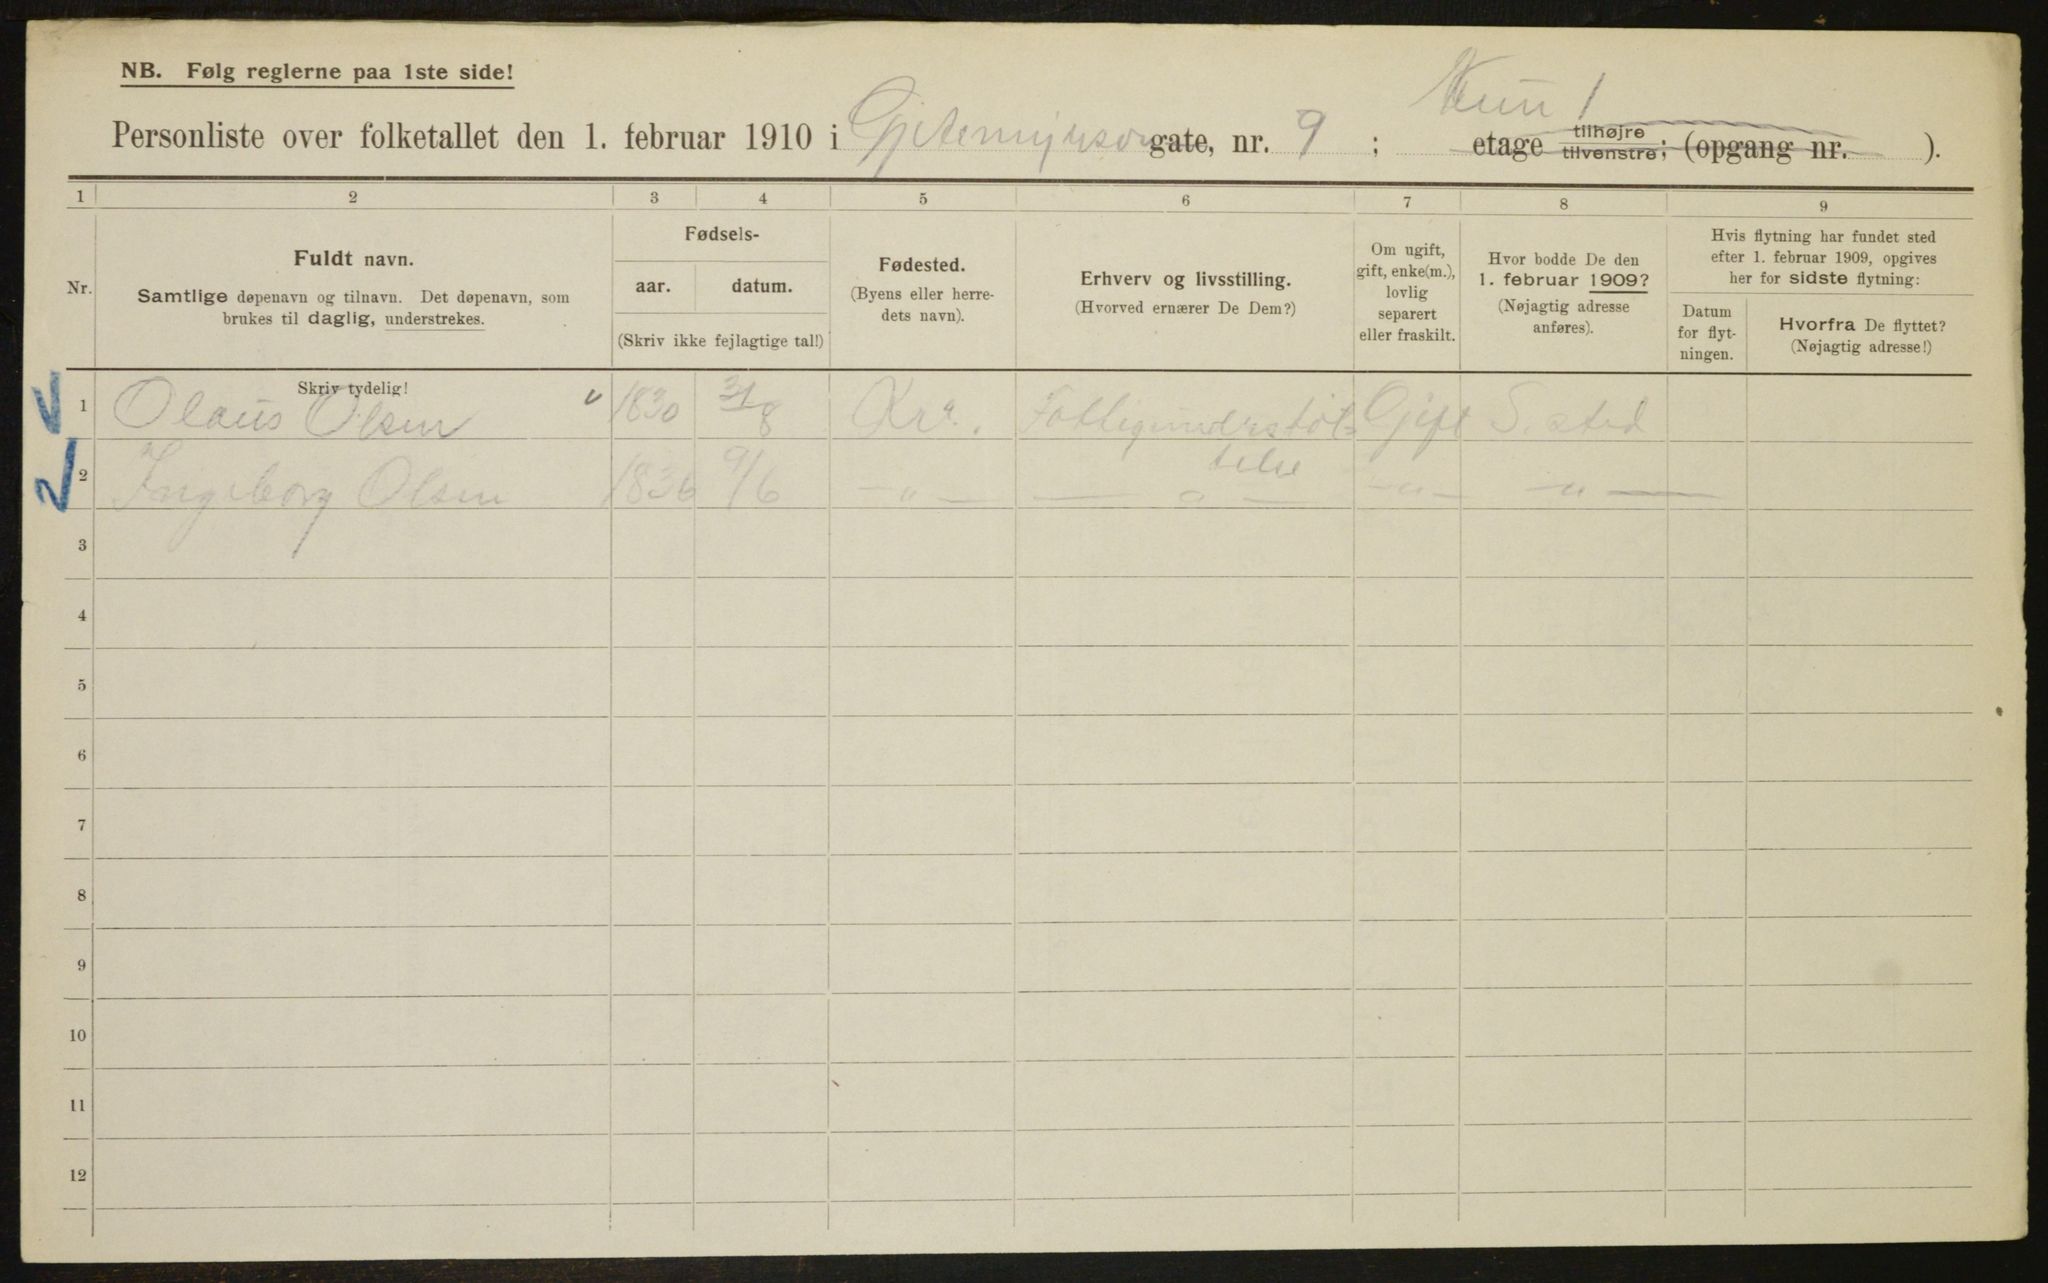 NB. Følg reglerne paa 1ste side!
Personliste over folketallet den 1. februar 1910 i Gjetemyrsv gate, nr. 9 ; 1 etage tilhøjre tilvenstre; (opgang nr. ).
1 2 3 4 5 6 7 8 9
Nr.
Fuldt navn.
Samtlige døpenavn og tilnavn. Det døpenavn, som
brukes til daglig, understrekes.
Skriv tydelig!
Fødsels-
aar. datum.
(Skriv ikke fejlagtige tal!)
Fødested.
(Byens eller herre-
dets navn).
Erhverv og livsstilling.
(Hvorved ernærer De Dem?)
Om ugift,
gift, enke(m.),
lovlig
separert
eller fraskilt.
Hvor bodde De den
1. februar 1909?
(Nøjagtig adresse
anføres).
Hvis flytning har fundet sted
efter 1. februar 1909, opgives
her for sidste flytning:
Datum
for flyt-
ningen.
Hvorfra De flyttet?
(Nøjagtig adresse!)
1 Olaus Olsen 1830 31/8 Kra. Fattigunderstøt- Gift S. sted
telse
2 Ingeborg Olsen 1836 9/6 — „ — — „ — — „ — — „ —
3
4
5
6
7
8
9
10
11
12
2